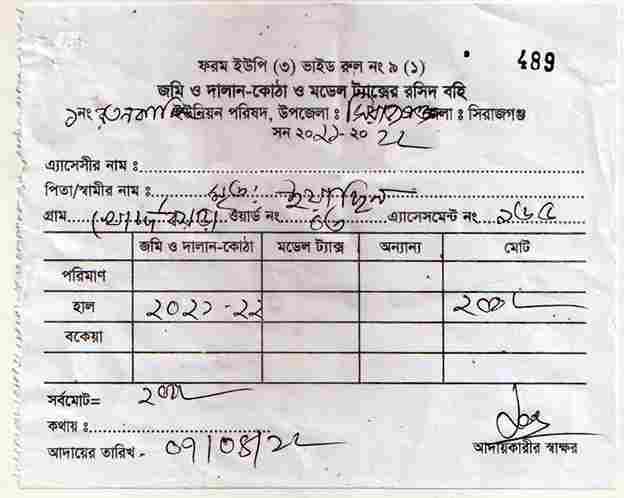 ফরম ইউপি (৩) ভাইড রুল নং ৯ (১) 489
জমি ও দালান-কোঠা ও মডেল ট্যাক্সের রসিদ বহি
১নং রতনকান্দি ইউনিয়ন পরিষদ, উপজেলা : সিরাজগঞ্জ জেলা : সিরাজগঞ্জ
সন ২০২১-২০২২
এ্যাসেসীর নাম :
পিতা/স্বামীর নাম : মৃত:
গ্রাম ওয়ার্ড নং এ্যাসেসমেন্ট নং
জমি ও দালান-কোঠা মডেল ট্যাক্স অন্যান্য মোট
পরিমাণ
হাল ২০২১-২২ ২০০/-
বকেয়া
সর্বমোট= ২০০/-
কথায় :
আদায়ের তারিখ -
আদায়কারীর স্বাক্ষর